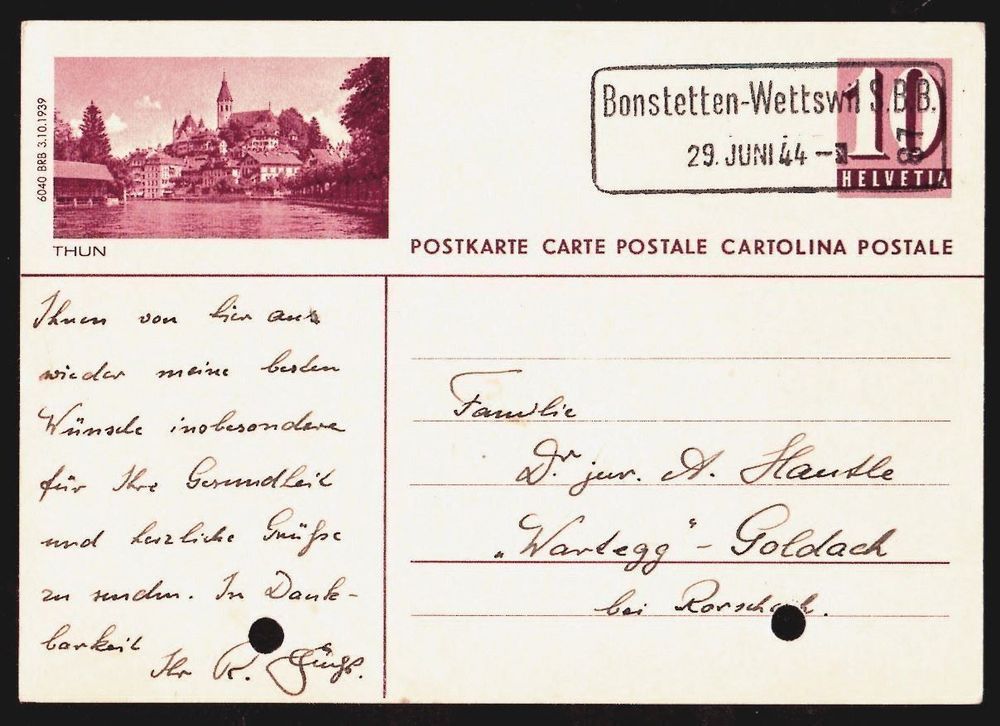 6040 BRB 3.10.1939
THUN
Bonstetten-Wettswil S.B.B.
29. JUNI 44 - 18
10
HELVETIA
POSTKARTE CARTE POSTALE CARTOLINA POSTALE
Ihnen von hier aus
wieder meine besten
Wünsche insbesondere
für Ihre Gesundheit
und herzliche Grüße
zu senden. In Dank-
barkeit
Ihr R.
Familie
Dr. jur. A. Hautle
„Wartegg" - Goldach
bei Rorschach.